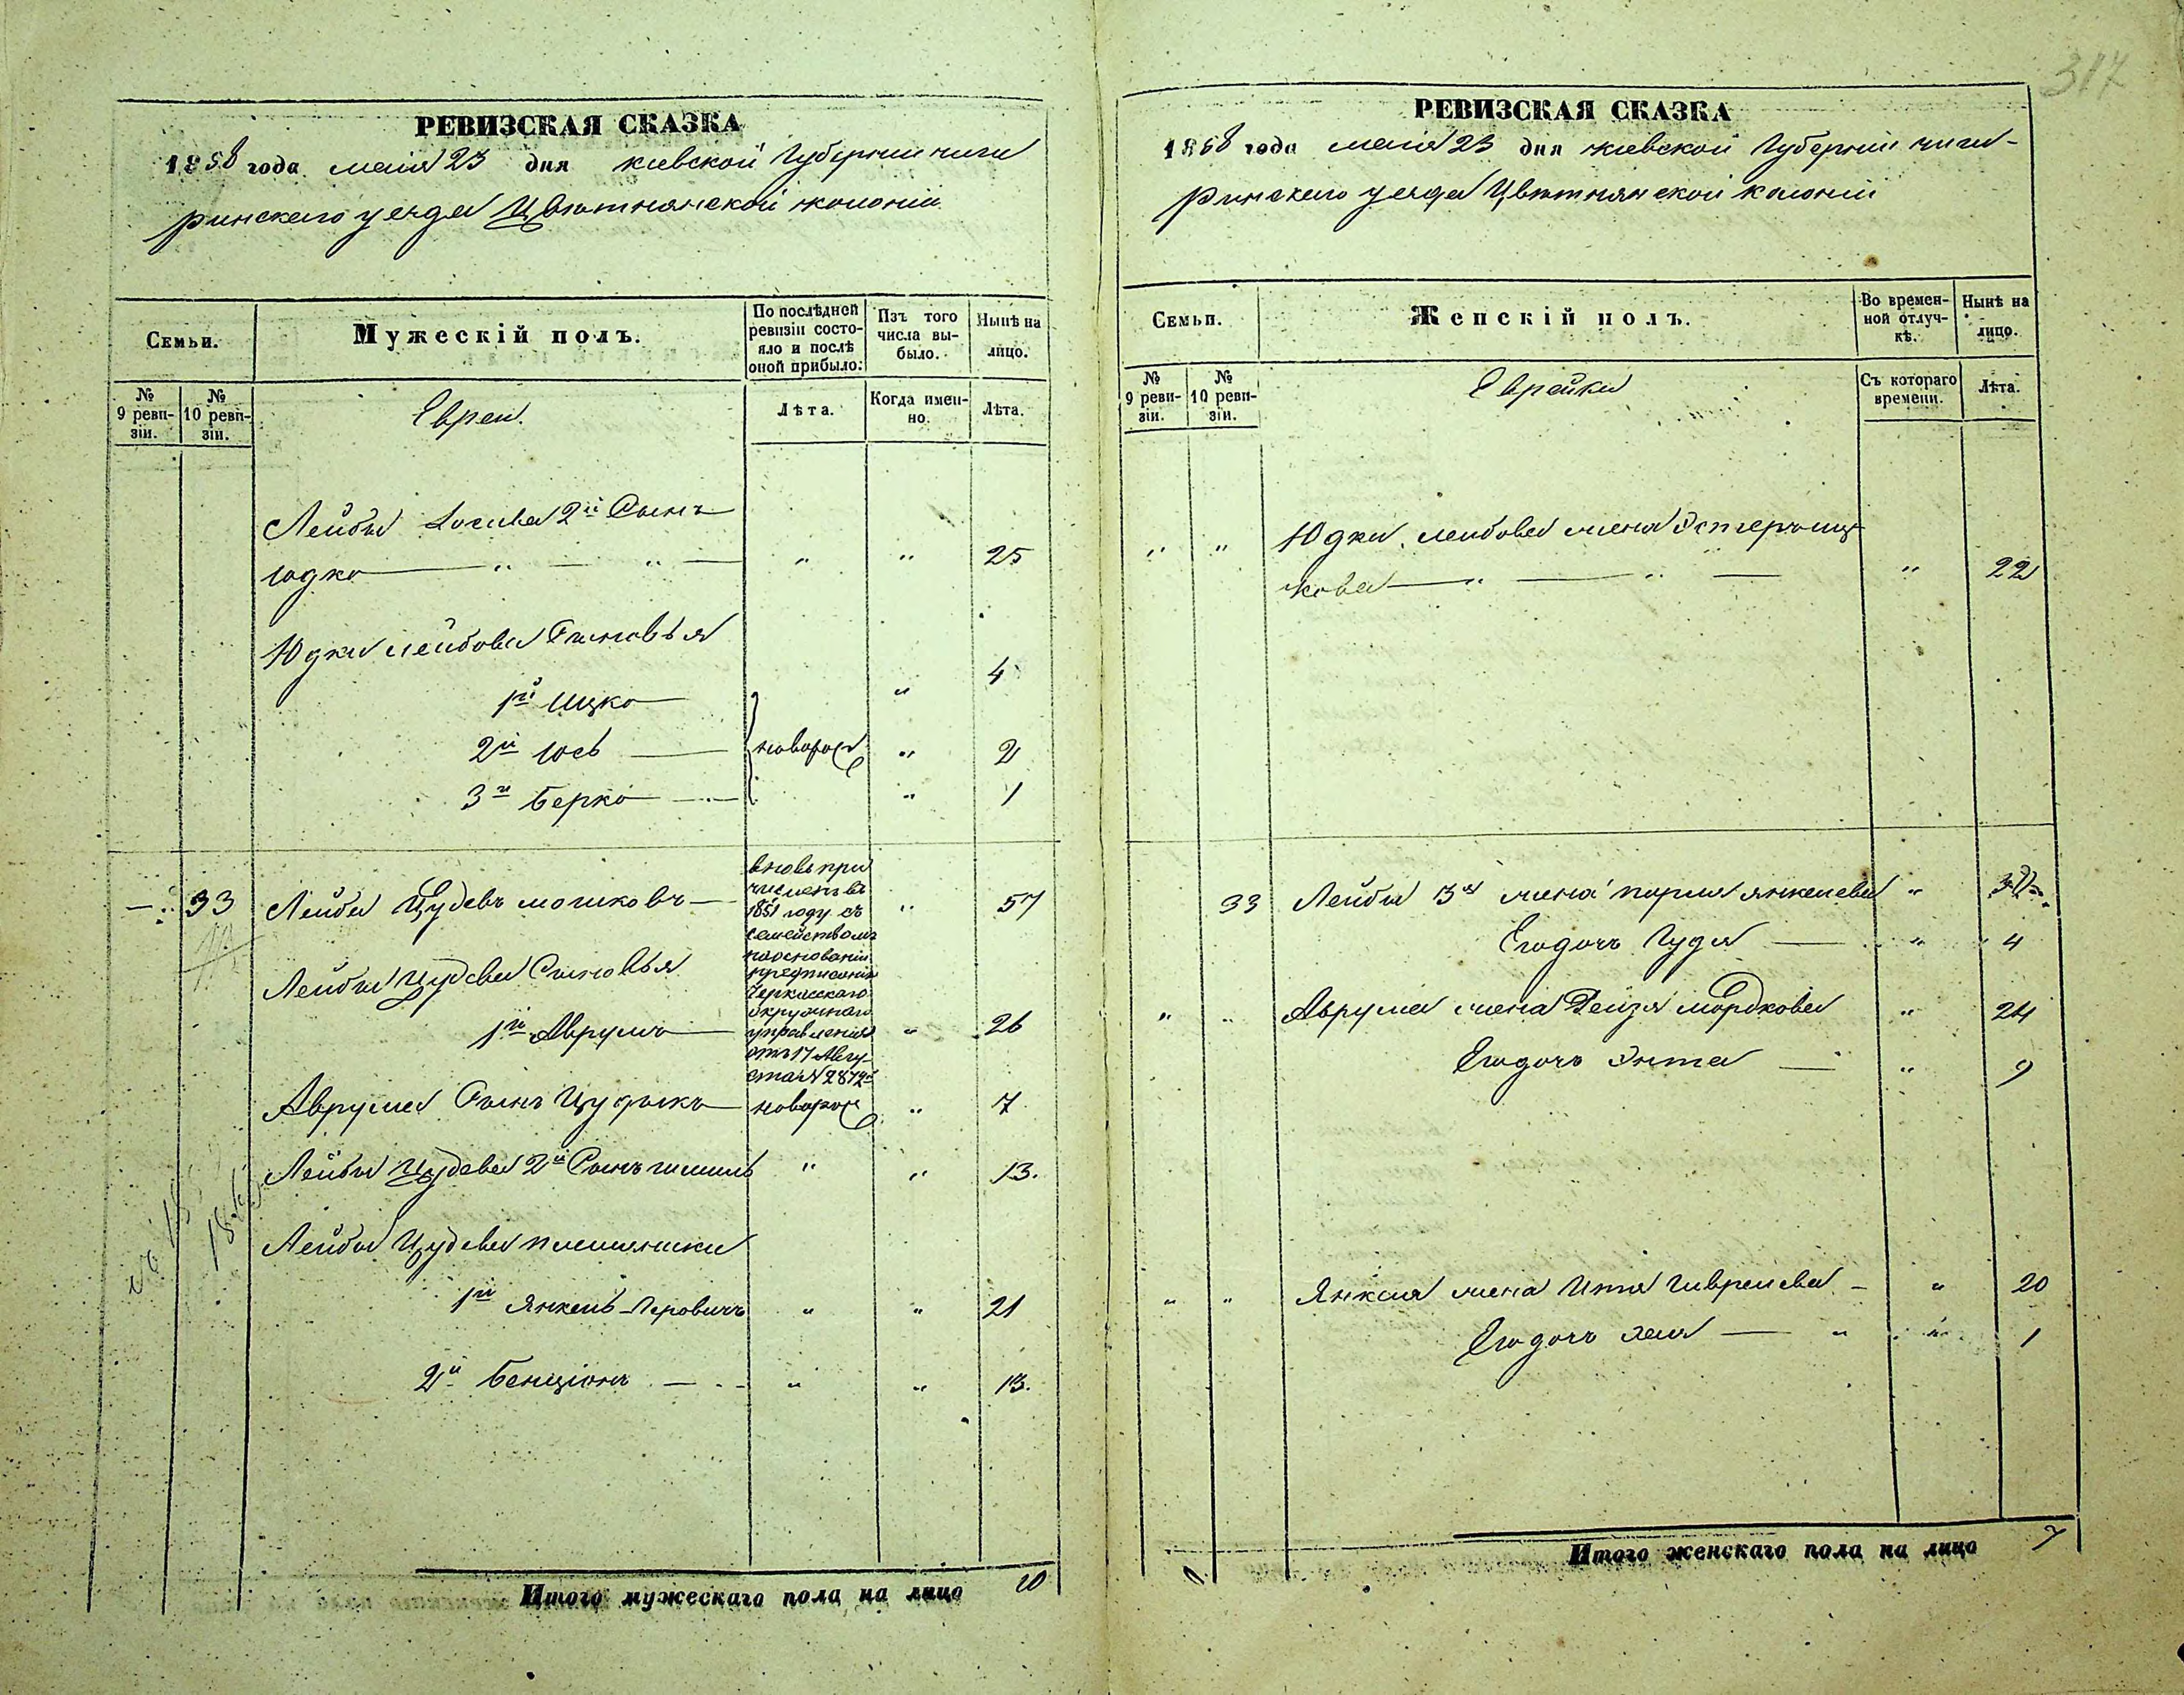 317
РЕВИЗСКАЯ СКАЗКА
1858 года маія 23 дня киевской Губерніи чиги
ринскаго уезда Цвѣтнянской колоніи
Семьи.
Мужескій полъ.
По послѣдней ревизіи состояло и послѣ оной прибыло:
Изъ того числа выбыло.
Нынѣ на лицо.
№ 9 ревизіи.
№ 10 ревизіи.
Евреи.
Лѣта.
Когда именно.
Лѣта.
Лейбы 2й Сынъ
юдко — „ — „ — „ „ 25
Юдки лейбова Сыновья
1й Ицко — „ 4
2й Іось — новорож „ 2
3й Берко — „ 1
33 Лейба Цудевъ мошковъ — „ 57
вновь при
численъ въ
1851 году съ
семействомъ
на основаніи
предписанія
Черкасскаго
окружнаго
управленія
отъ 17 Авгу-
ста №
Лейбы Цудева Сыновья
1й Аврумъ — „ 26
Аврума Сынъ Цудыкъ новорож „ 7
Лейбы Цудева 2й Сынъ „ „ 13.
Лейбы Цудева племянники
1й Янкель „ „ 21
2й Бенціонъ — „ „ 13.
Итого мужескаго пола на лицо 10
РЕВИЗСКАЯ СКАЗКА
1858 года маія 23 дня киевской Губерніи чиги-
ринскаго уезда Цвѣтнянской колоніи
Семьи.
Женскій полъ.
Во временной отлучкѣ.
Нынѣ на лицо.
№ 9 ревизіи.
№ 10 ревизіи.
Еврейки
Съ котораго времени.
Лѣта.
„ „ Юдки лейбова жена Эстеръ иц
кова — „ — „ — „ 22
33 Лейбы жена янкелева „
Егодочь Гудя — „ 4
„ „ Аврума жена Рейзя мордкова „ 24
Егодочь Энта — „ 9
„ „ Янкеля жена Итя — „ 20
Егодочь Хая — „ „ 1
Итого женскаго пола на лицо 7